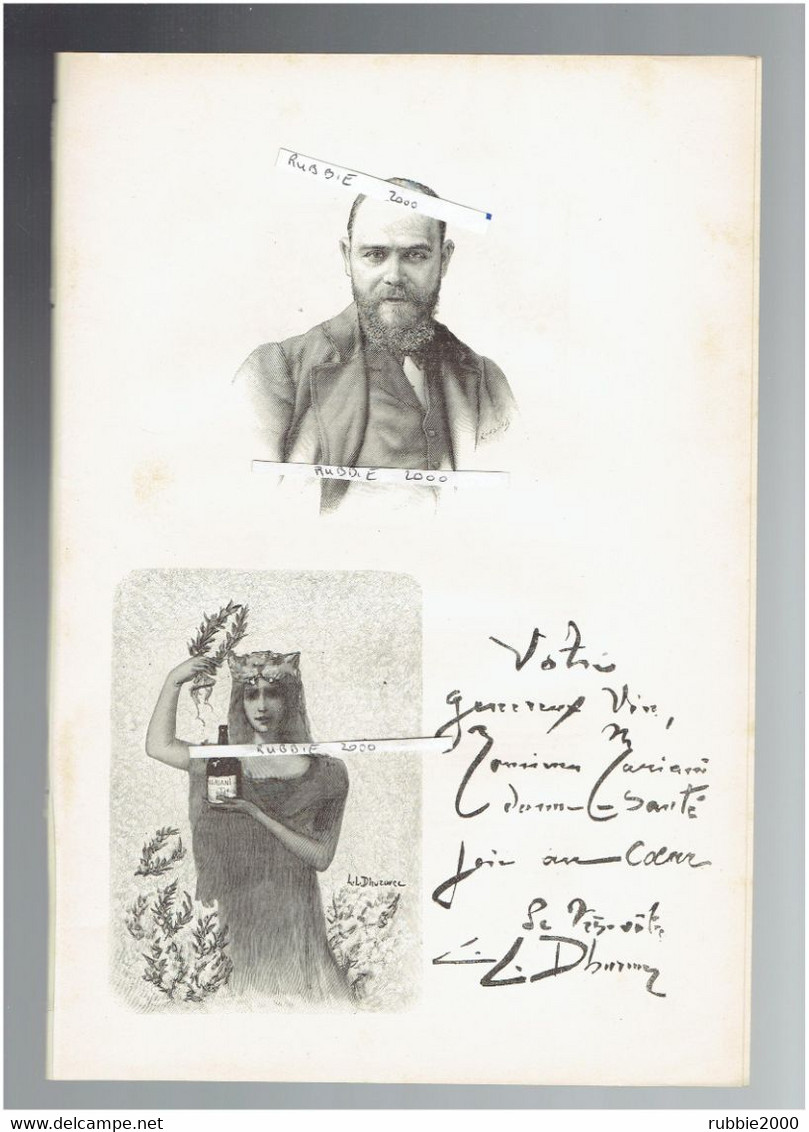 RUBBIE 2000
RUBBIE 2000
RUBBIE 2000
MARIANI
L.L. Dhurmer
Votre
généreux Vin,
Monsieur Mariani
donne Santé
Joie au Cœur
L. L. Dhurmer
delcampe.net
rubbie2000